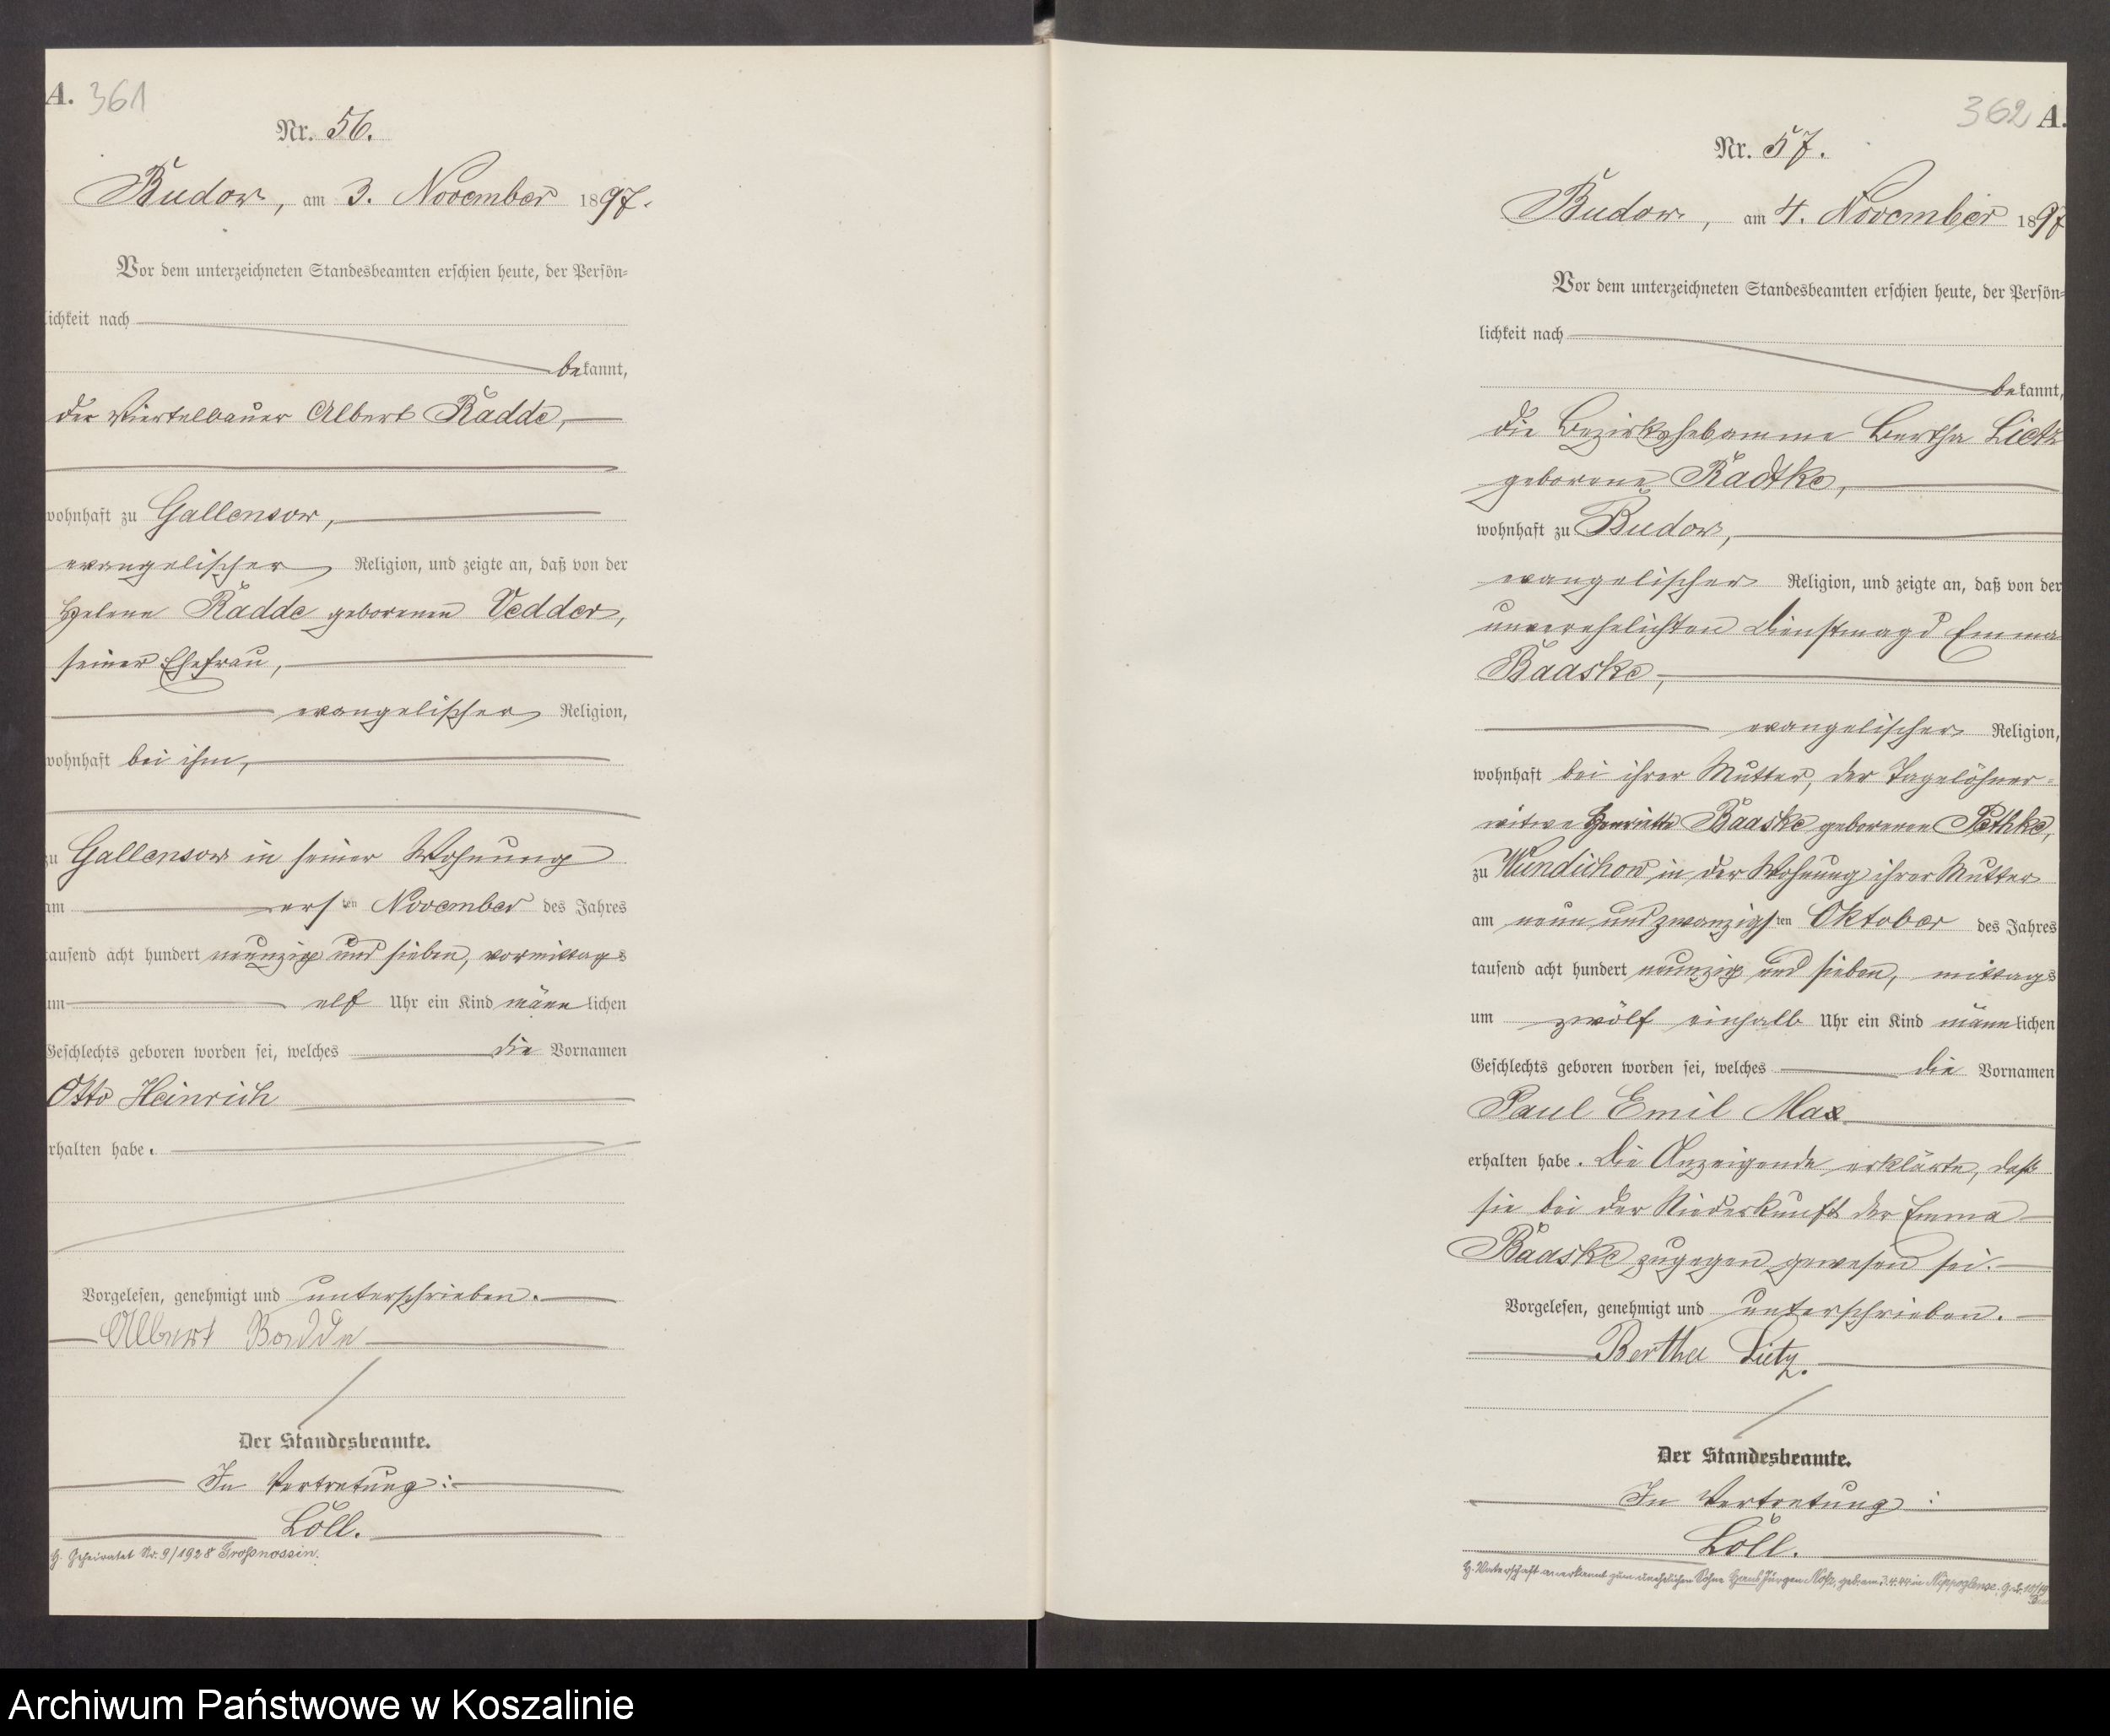 A. 361
Nr. 56.
Budow, am 3. November 1897.
Vor dem unterzeichneten Standesbeamten erschien heute, der Persön=
lichkeit nach
bekannt,
der Viertelbauer Albert Radde,
wohnhaft zu Gallensow,
evangelischer Religion, und zeigte an, daß von der
Helene Radde geborenen Vedder,
seiner Ehefrau,
evangelischer Religion,
wohnhaft bei ihm,
zu Gallensow in seiner Wohnung
am ersten November des Jahres
tausend acht hundert neunzig und sieben, vormittags
um elf Uhr ein Kind männlichen
Geschlechts geboren worden sei, welches die Vornamen
Otto Heinrich
erhalten habe.
Vorgelesen, genehmigt und unterschrieben.
Albert Radde
Der Standesbeamte.
In Vertretung:
Löll.
H. Geheiratet Nr. 9/1928 Großnossin.
362 A.
Nr. 57.
Budow, am 4. November 1897
Vor dem unterzeichneten Standesbeamten erschien heute, der Persön=
lichkeit nach
bekannt,
die Bezirkshebamme Bertha Lietz
geborene Radtke,
wohnhaft zu Budow,
evangelischer Religion, und zeigte an, daß von der
unverehelichten Dienstmagd Emma
Baaske,
evangelischer Religion,
wohnhaft bei ihrer Mutter, der Tagelöhner=
witwe Henriette Baaske geborenen Pethke,
zu Wundichow in der Wohnung ihrer Mutter
am neun und zwanzigsten Oktober des Jahres
tausend acht hundert neunzig und sieben, mittags
um zwölf einhalb Uhr ein Kind männlichen
Geschlechts geboren worden sei, welches die Vornamen
Paul Emil Max
erhalten habe. Die Anzeigende erklärte, daß
sie bei der Niederkunft der Emma
Baaske zugegen gewesen sei.
Vorgelesen, genehmigt und unterschrieben.
Bertha Lietz.
Der Standesbeamte.
In Vertretung:
Löll.
H. Vaterschaft anerkannt zum unehelichen Sohne Hans Jürgen geb. am 3.4.44 in
Archiwum Państwowe w Koszalinie